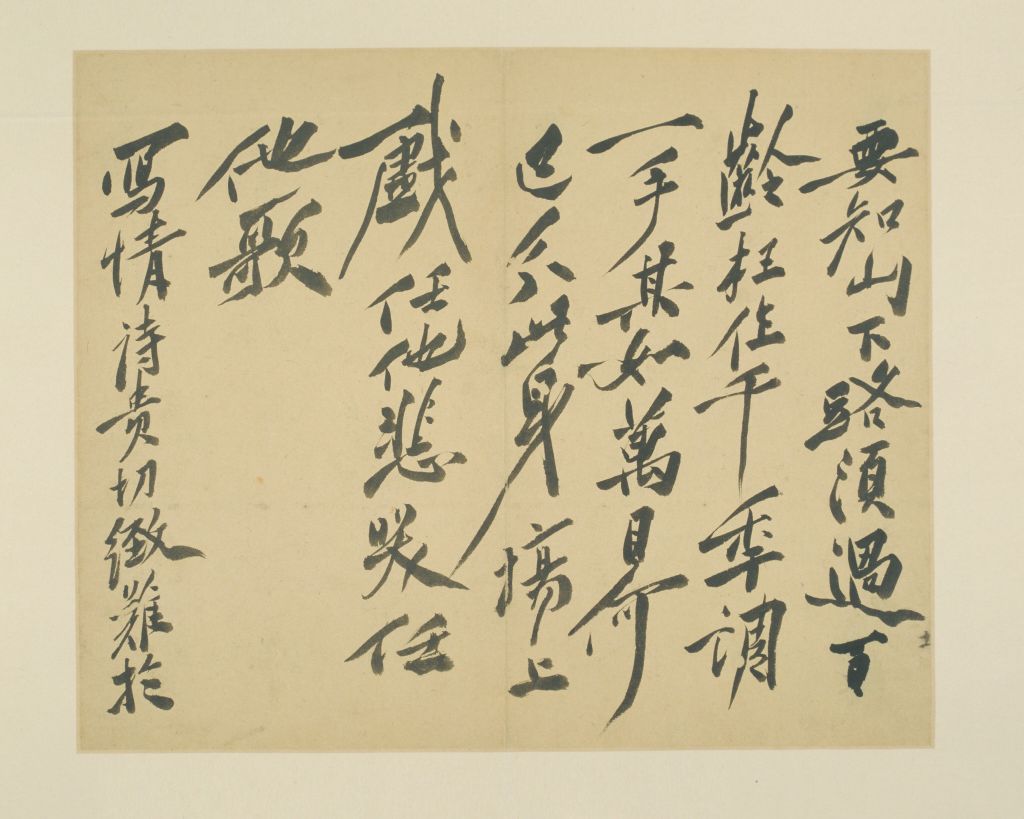 要知山下路須過百
齡枉作千年調
一手其如萬目何
已分此身塲上
戲任他悲咲任
他歌
寫情詩貴切難於